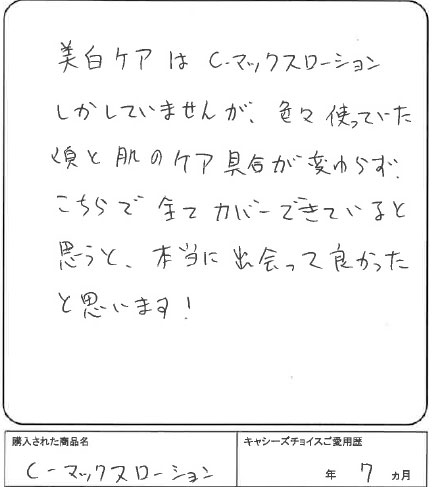 美白ケアは C-マックスローション
しかしていませんが、色々使っていた
頃と肌のケア具合が変わらず、
こちらで全てカバーできていると
思うと、本当に出会って良かった
と思います！
購入された商品名
キャシーズチョイスご愛用歴
C-マックスローション
年 7 ヵ月